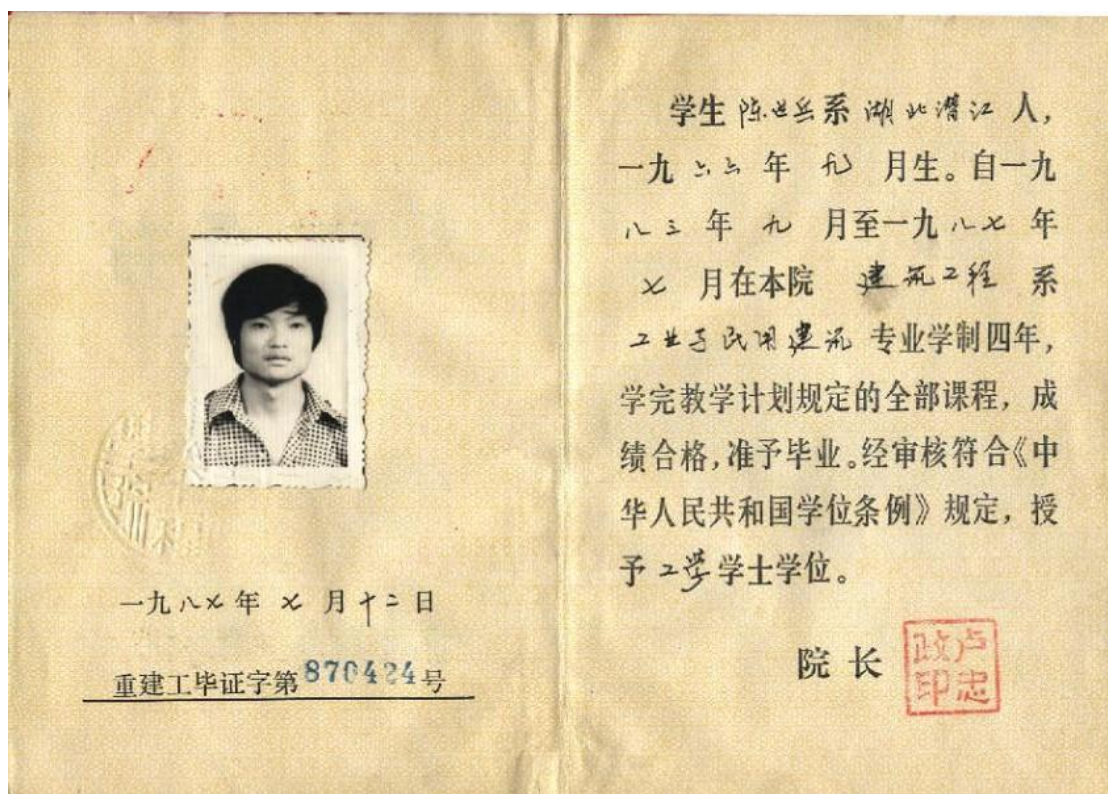 一九八七年 七 月十二日
重建工毕证字第870424号
学生 陈世岳系 湖北潜江 人,
一九六六年 九 月生。自一九
八三年 九 月至一九八七年
七 月在本院 建筑工程 系
工业与民用建筑 专业学制四年,
学完教学计划规定的全部课程,成
绩合格,准予毕业。经审核符合《中
华人民共和国学位条例》规定,授
予工学学士学位。
院长
卢忠政印